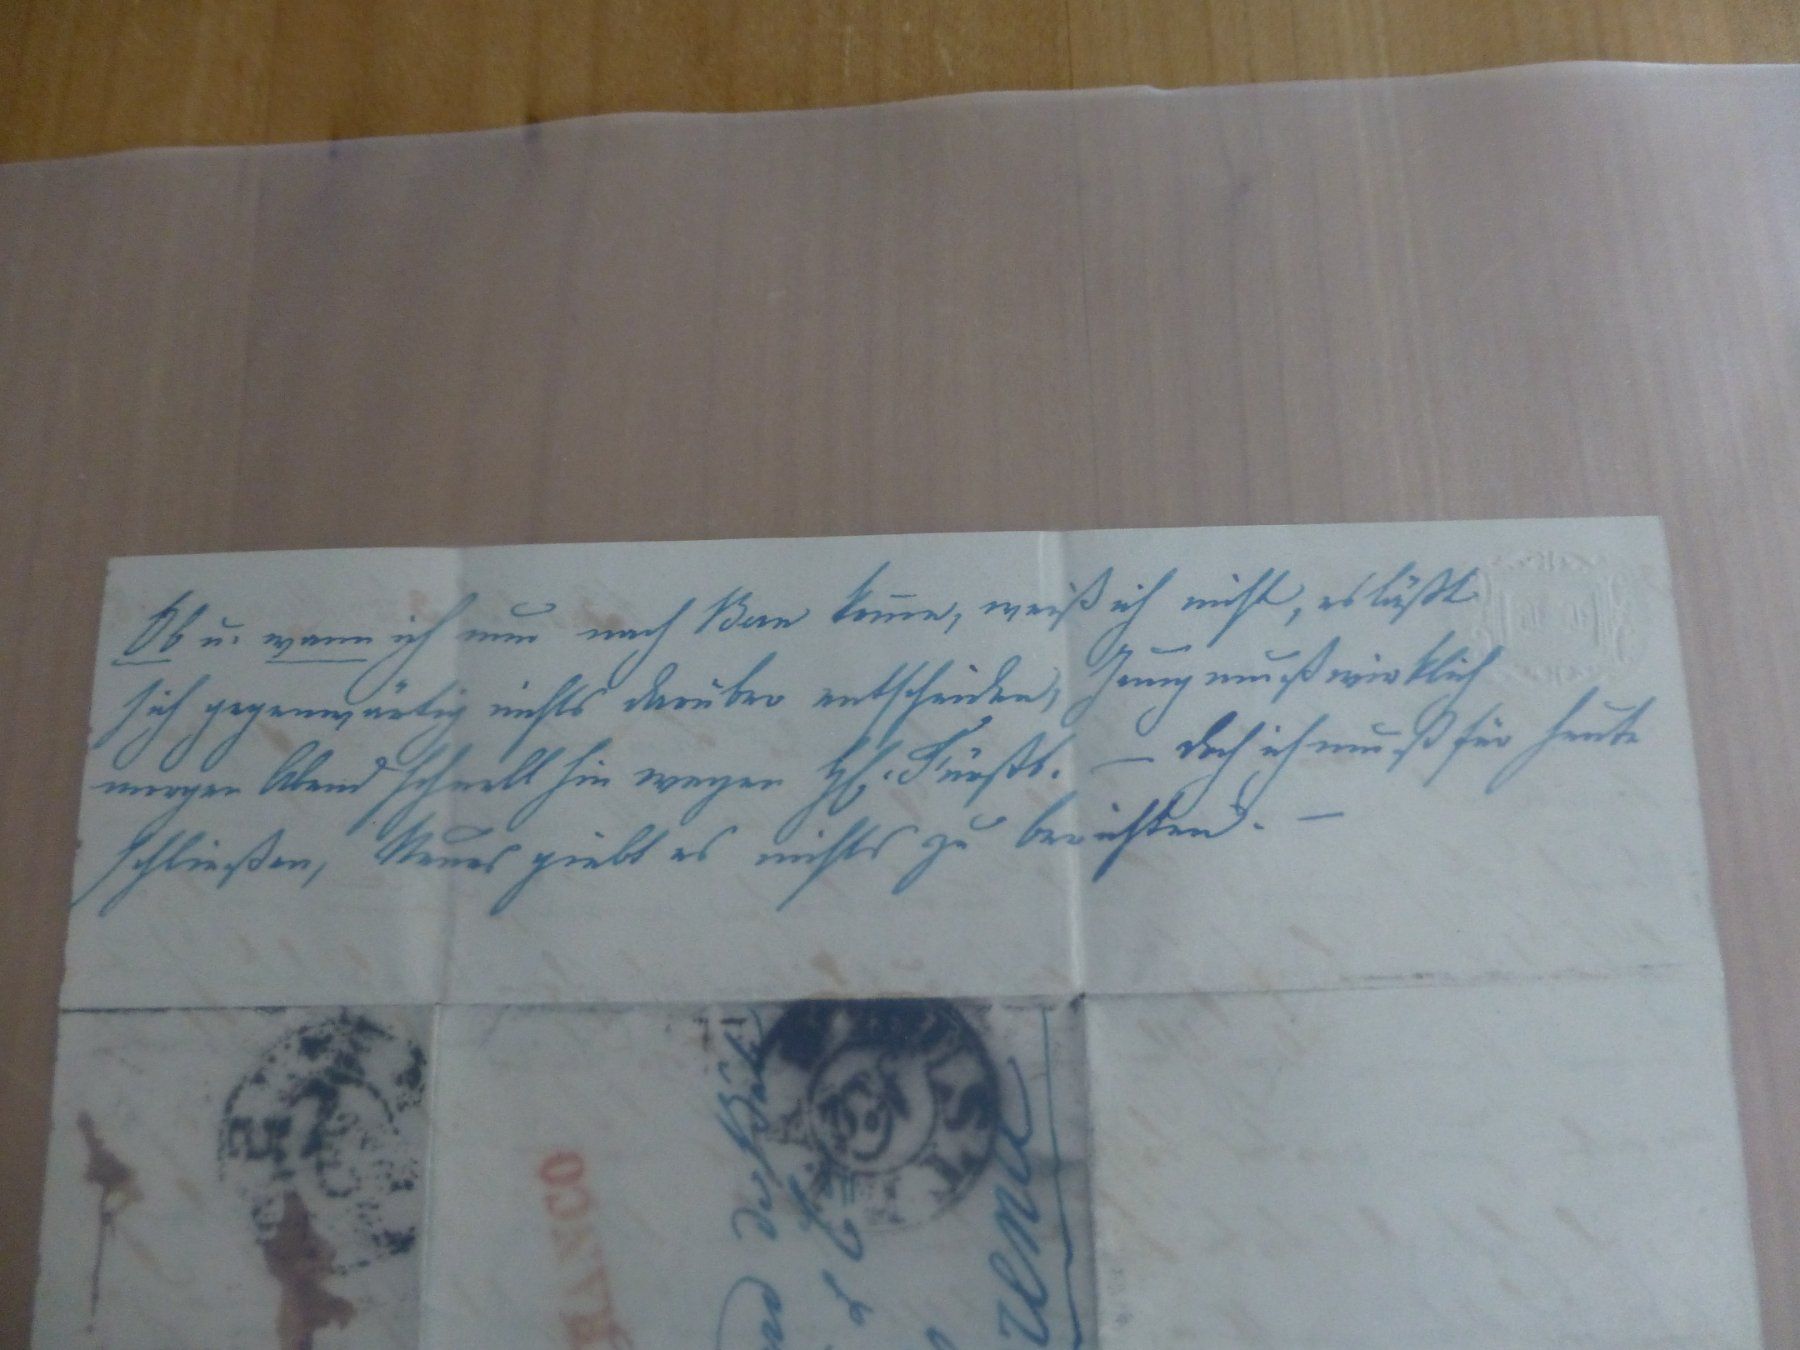 Ob u. wann ich nun nach Bern komme, weiß ich nicht, es läßt
sich gegenwärtig nichts darüber entscheiden, Jenny muß wirklich
morgen Abend schnell hin wegen H. Fürst. — doch ich muß für heute
schließen, Neues giebt es nichts zu berichten. —
FRANCO